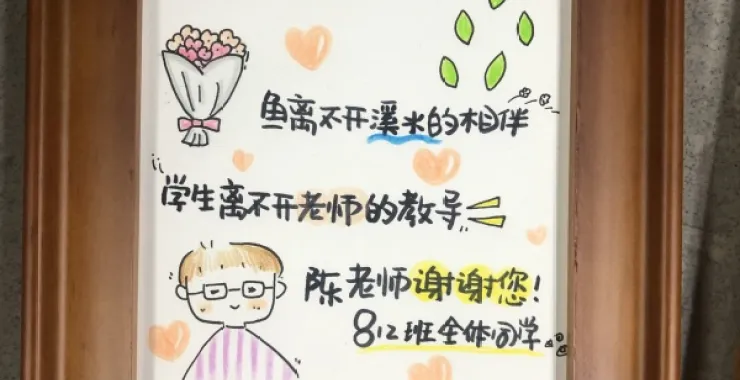 鱼离不开溪水的相伴
学生离不开老师的教导
陈老师谢谢您!
812班全体同学